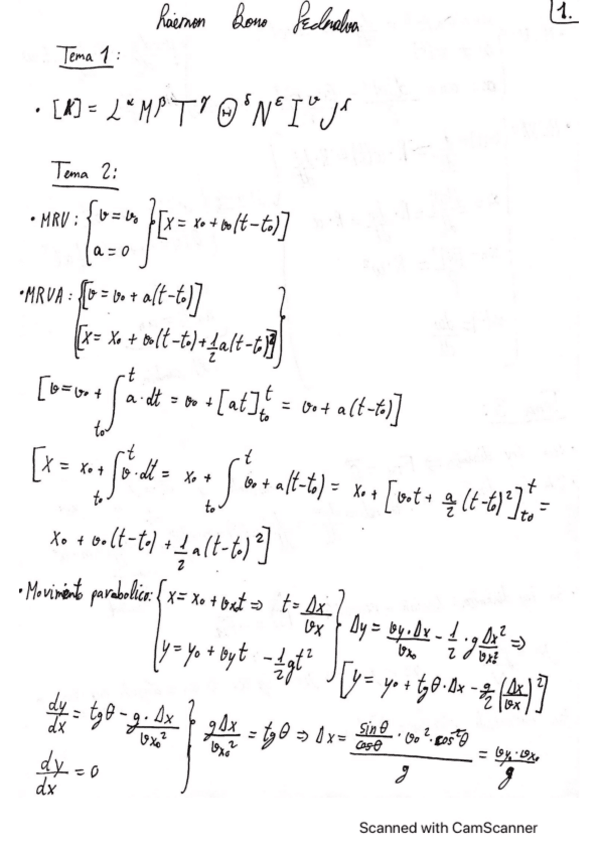 1.
Bono
Tema 1:
· [A] = L^α M^β T^γ Θ^δ N^ε I^υ J^f
Tema 2:
· MRU: { v = v₀ } [x = x₀ + v₀(t-t₀)]
a = 0
· MRVA: { [v = v₀ + a(t-t₀)]
[x = x₀ + v₀(t-t₀) + 1/2 a(t-t₀)²] }
[v = v₀ + ∫_{t₀}^{t} a·dt = v₀ + [at]_{t₀}^{t} = v₀ + a(t-t₀)]
[x = x₀ + ∫_{t₀}^{t} v·dt = x₀ + ∫_{t₀}^{t} v₀ + a(t-t₀) = x₀ + [v₀t + a/2 (t-t₀)²]_{t₀}^{t} =
x₀ + v₀(t-t₀) + 1/2 a(t-t₀)²]
· Movimiento parabolico: { x = x₀ + vₓt ⇒ t = Δx/vₓ } Δy = vy·Δx/vx₀ - 1/2 · g Δx²/vx₀² ⇒
y = y₀ + vyt - 1/2 gt² [y = y₀ + tgθ·Δx - g/2 (Δx/vx)²]
dy/dx = tgθ - g·Δx/vx₀² } gΔx/vx₀² = tgθ ⇒ Δx = (sinθ/cosθ · v₀² · cos²θ)/g = vy₀·vx₀/g
dy/dx = 0
Scanned with CamScanner